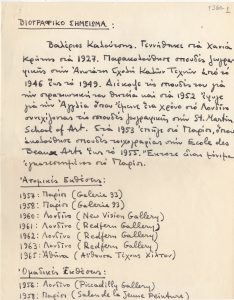 ΒΙΟΓΡΑΦΙΚΟ ΣΗΜΕΙΩΜΑ :
Βαλέριος Καλούτσης. Γεννήθηκε στα Χανιά
Κρήτης στα 1927. Παρακολούθησε σπουδές ζωγρα-
φικής στην Ανωτάτη Σχολή Καλών Τεχνών από το
1946 έως το 1949. Διέκοψε τις σπουδές του για
την στρατιωτική του θητεία και στα 1952 έφυγε
για την Αγγλία όπου έμεινε ένα χρόνο στο Λονδίνο
συνεχίζοντας τις σπουδές ζωγραφικής στην St. Martin
School of Art. Στα 1953 στο Παρίσι, όπου
ακολούθησε σπουδές τοιχογραφίας στην Ecole des
Beaux Arts έως το 1955. Έκτοτε είναι μόνιμα
εγκατεστημένος στο Παρίσι.
Ατομικές Εκθέσεις:
1957: Παρίσι (Galerie 93)
1958: Παρίσι (Galerie 93)
1960: Λονδίνο (New Vision Gallery)
1961: Λονδίνο (Redfern Gallery)
1962: Λονδίνο (Redfern Gallery)
1963: Λονδίνο (Redfern Gallery)
1965: Αθήνα (Αίθουσα Τέχνης Χίλτον)
Ομαδικές Εκθέσεις:
1956: Λονδίνο (Piccadilly Gallery)
1958: Παρίσι (Salon de la Jeune Peinture)